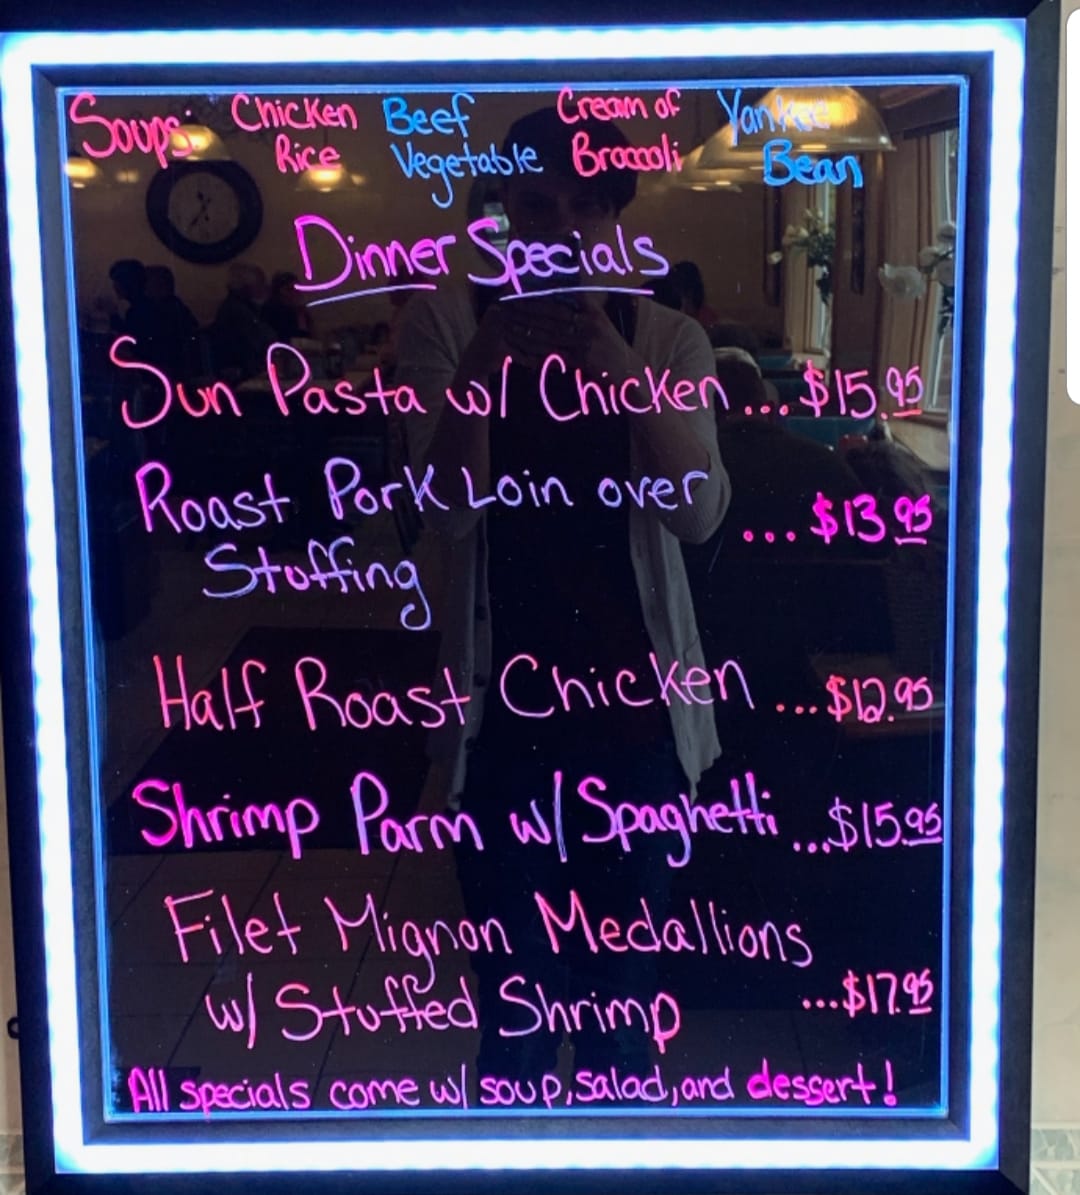 Soups: Chicken Rice Beef Vegetable Cream of Broccoli Yankee Bean
Dinner Specials
Sun Pasta w/ Chicken ... $15.95
Roast Pork Loin over
Stuffing ... $13.95
Half Roast Chicken ... $12.95
Shrimp Parm w/ Spaghetti ... $15.95
Filet Mignon Medallions
w/ Stuffed Shrimp ... $17.95
All specials come w/ soup, salad, and dessert!